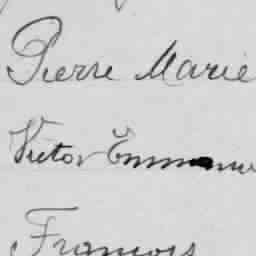 Pierre Marie
Victor Emmanu
François